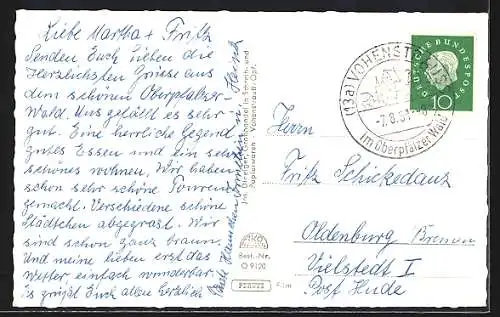 Liebe Martha + Fritz
Senden Euch lieben die
Herzlichsten Grüsse aus
dem schönen Oberpfalzer-
Wald. Uns gefällt es sehr
gut. Eine herrliche Gegend
gutes Essen und ein sehr
schönes wohnen. Wir haben
schon sehr schöne Touren
gemacht. Verschiedene schöne
Städtchen abgegrast. Wir
sind schon ganz braun.
Und meine lieben erst das
Wetter einfach wunderbar.
Es grüßt Euch allen herzlich
Eure Hannchen
Heinz
Papierwaren - Vohenstrauß/Opf.
Best.-Nr.
O 9120
(13a) VOHENSTRAUSS
-7.8.61
Im Oberpfälzer Wald
DEUTSCHE BUNDESPOST
10
Herrn
Fritz Schickedanz
Oldenburg Bremen
Vielstedt I
Post Hude